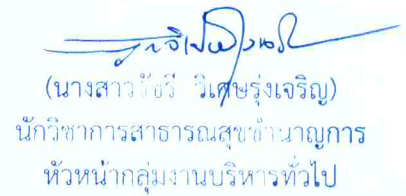 (นางสาวรัชรี วิเศษรุ่งเจริญ)
นักวิชาการสาธารณสุขชำนาญการ
หัวหน้ากลุ่มงานบริหารทั่วไป